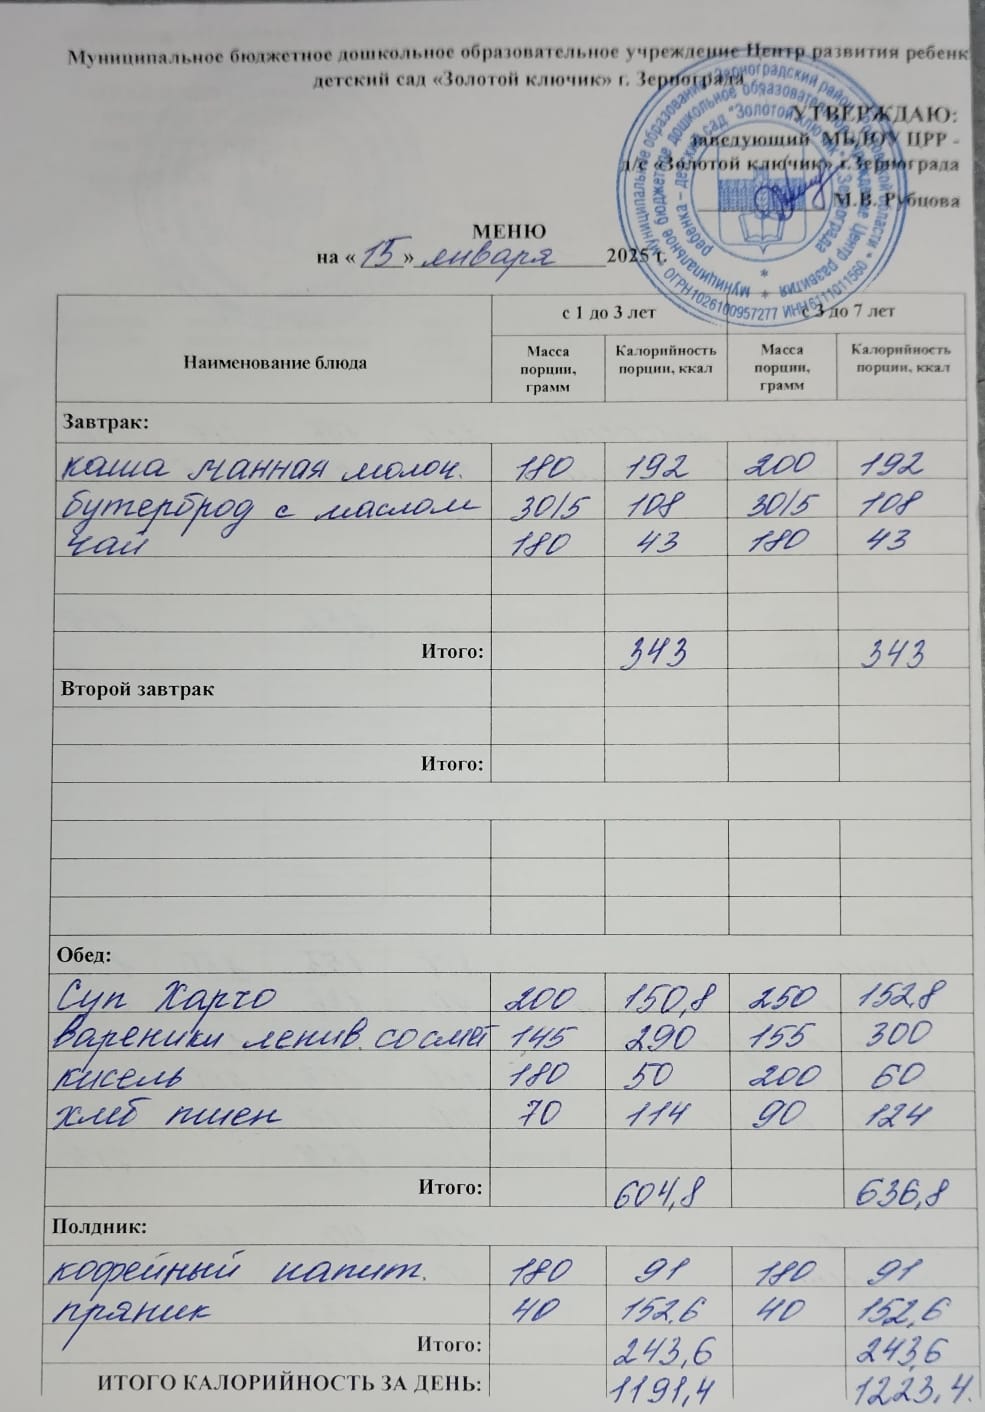 Муниципальное бюджетное дошкольное образовательное учреждение Центр развития ребенк
детский сад «Золотой ключик» г. Зернограда
УТВЕРЖДАЮ:
заведующий МБДОУ ЦРР -
д/с «Золотой ключик» г.Зернограда
М.В. Рубцова
МЕНЮ
на « 15 » января 2025 г.
Наименование блюда с 1 до 3 лет с 3 до 7 лет
Масса порции, грамм Калорийность порции, ккал Масса порции, грамм Калорийность порции, ккал
Завтрак:
каша манная молоч. 180 192 200 192
бутерброд с маслом 30/5 108 30/5 108
чай 180 43 180 43
Итого: 343 343
Второй завтрак
Итого:
Обед:
Суп Харчо 200 150,8 250 152,8
вареники ленив. со смет 145 290 155 300
кисель 180 50 200 60
хлеб пшен 70 114 90 124
Итого: 604,8 636,8
Полдник:
кофейный напит. 180 91 180 91
пряник 40 152,6 40 152,6
Итого: 243,6 243,6
ИТОГО КАЛОРИЙНОСТЬ ЗА ДЕНЬ: 1191,4 1223,4.
ОГРН1026100957277 ИНН6111011560